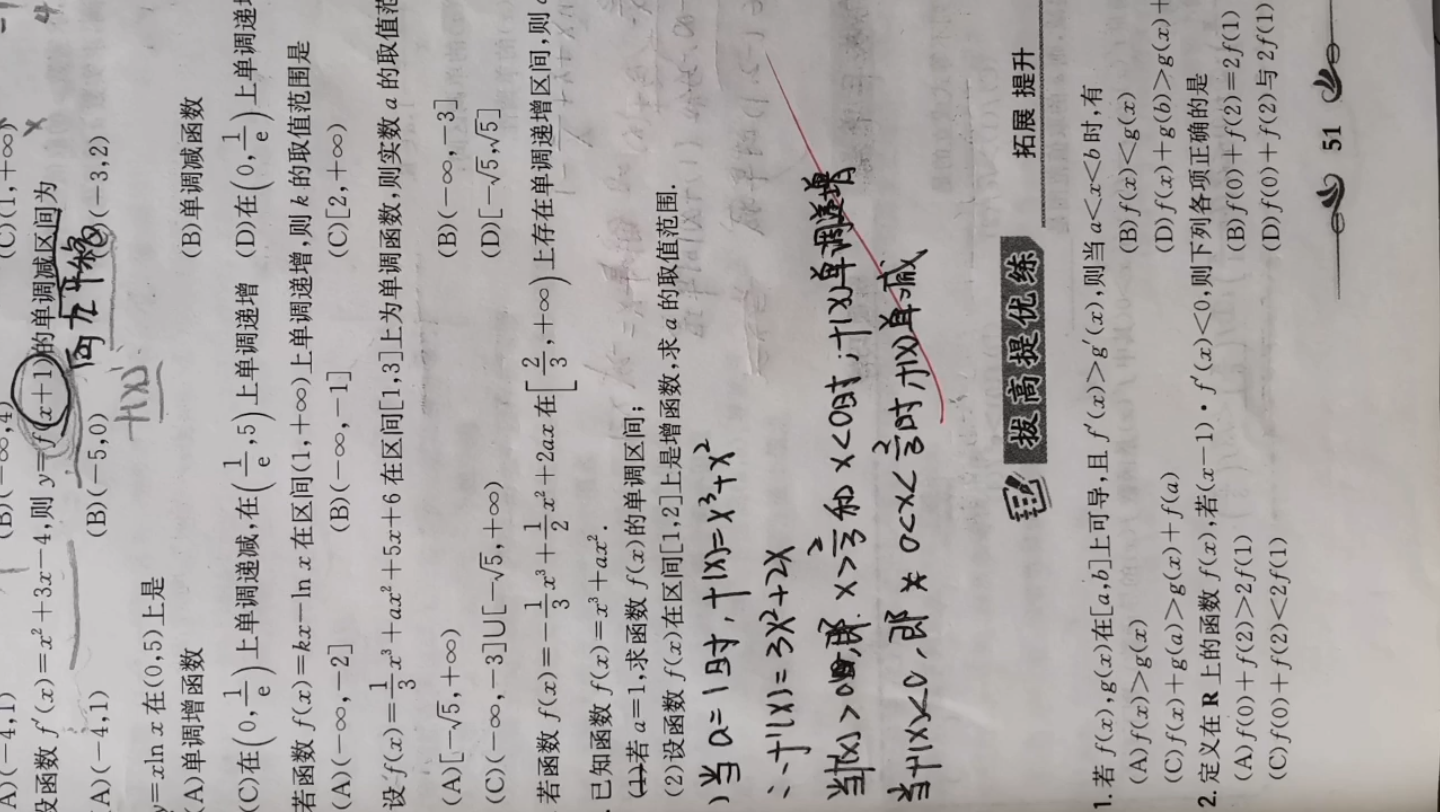 A)(-4,1)
(B)(-∞,4)
(C)(1,+∞)
设函数 f′(x)=x²+3x-4,则 y=f(x+1)的单调减区间为
向左平移
A)(-4,1)
(B)(-5,0)
(-3,2)
f(x)
y=xln x 在(0,5)上是
(A)单调增函数
(B)单调减函数
(C)在(0,1/e)上单调递减,在(1/e,5)上单调递增
(D)在(0,1/e)上单调递增
若函数 f(x)=kx-ln x 在区间(1,+∞)上单调递增,则 k 的取值范围是
(A)(-∞,-2]
(B)(-∞,-1]
(C)[2,+∞)
设 f(x)=1/3x³+ax²+5x+6 在区间[1,3]上为单调函数,则实数 a 的取值范
(A)[-√5,+∞)
(B)(-∞,-3]
(C)(-∞,-3]∪[-√5,+∞)
(D)[-√5,√5]
若函数 f(x)=-1/3x³+1/2x²+2ax 在[2/3,+∞)上存在单调递增区间,则
.已知函数 f(x)=x³+ax².
(1)若 a=1,求函数 f(x)的单调区间;
(2)设函数 f(x)在区间[1,2]上是增函数,求 a 的取值范围.
)当a=1时,f(x)=x³+x²
∴f′(x)=3x²+2x
当f(x)>0时,即 x>2/3和x<0时,f(x)单调递增
当f(x)<0,即 0<x<2/3时,f(x)单减
拔高提优练
拓展 提升
1.若 f(x),g(x)在[a,b]上可导,且 f′(x)>g′(x),则当 a<x<b 时,有
(A)f(x)>g(x)
(B)f(x)<g(x)
(C)f(x)+g(a)>g(x)+f(a)
(D)f(x)+g(b)>g(x)+
2.定义在 R 上的函数 f(x),若(x-1)·f′(x)<0,则下列各项正确的是
(A)f(0)+f(2)>2f(1)
(B)f(0)+f(2)=2f(1)
(C)f(0)+f(2)<2f(1)
(D)f(0)+f(2)与 2f(1)
51